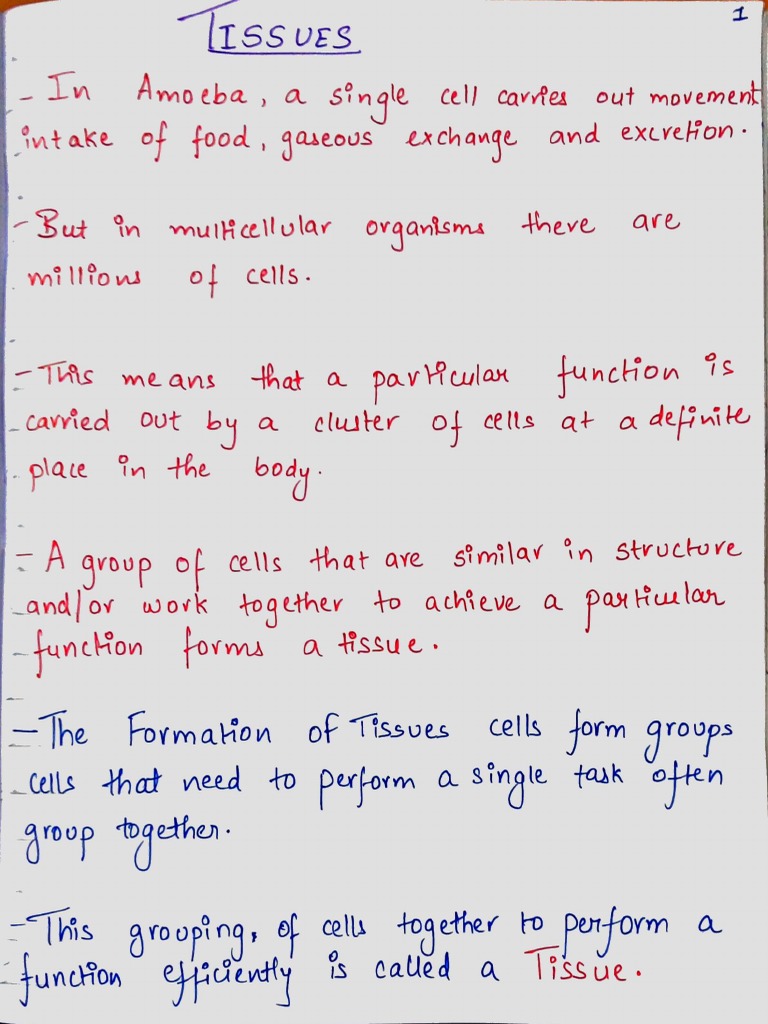 1
TISSUES
- In Amoeba, a single cell carries out movement
intake of food, gaseous exchange and excretion.
- But in multicellular organisms there are
millions of cells.
- This means that a particular function is
carried out by a cluster of cells at a definite
place in the body.
- A group of cells that are similar in structure
and/or work together to achieve a particular
function forms a tissue.
- The Formation of Tissues cells form groups
cells that need to perform a single task often
group together.
- This grouping, of cells together to perform a
function efficiently is called a Tissue.